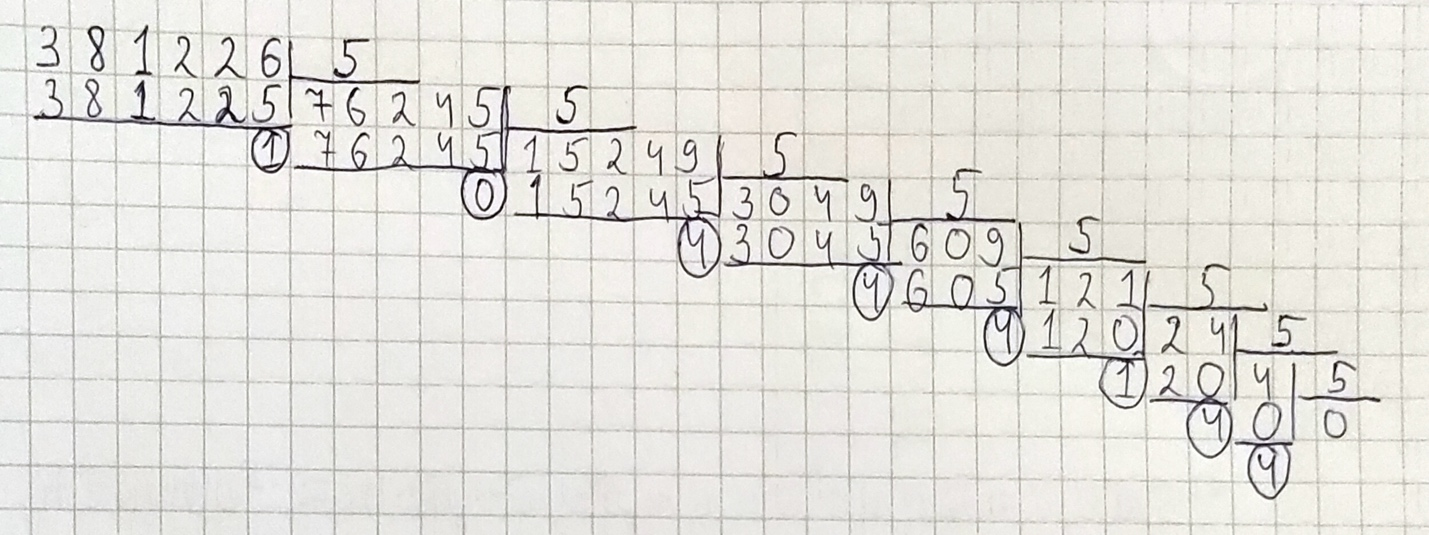 381226 5
381225 76245 5
1 76245 15249 5
0 15245 3049 5
4 3045 609 5
4 605 121 5
4 120 24 5
1 20 4 5
4 0 0
4